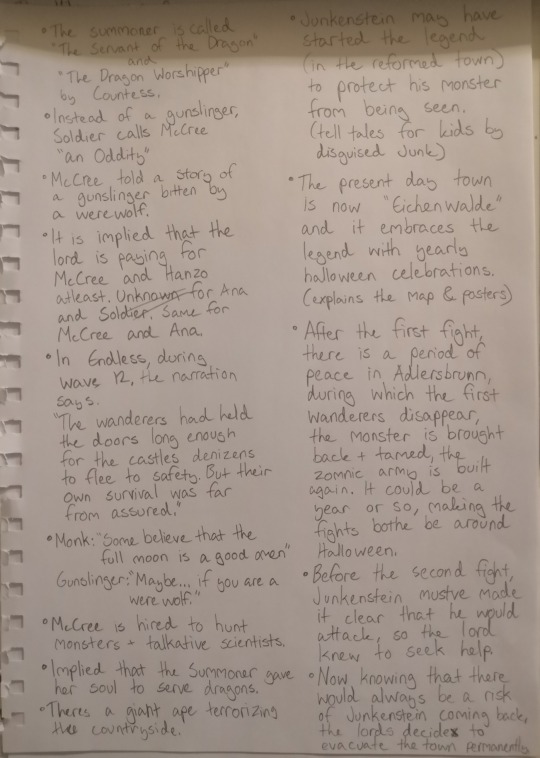 • The summoner is called
"The Servant of the Dragon"
and
"The Dragon Worshipper"
by Countess.
• Instead of a gunslinger,
Soldier calls McCree
"an Oddity"
• McCree told a story of
a gunslinger bitten by
a werewolf.
• It is implied that the
lord is paying for
McCree and Hanzo
atleast. Unknown for Ana
and Soldier. Same for
McCree and Ana.
• In Endless, during
wave 12, the narration
says.
"The wanderers had held
the doors long enough
for the castles denizens
to flee to safety. But their
own survival was far
from assured."
• Monk: "Some believe that the
full moon is a good omen"
Gunslinger: "Maybe... if you are a
werewolf."
• McCree is hired to hunt
monsters + talkative scientists.
• Implied that the Summoner gave
her soul to serve dragons.
• Theres a giant ape terrorizing
the countryside.
• Junkenstein may have
started the legend
(in the reformed town)
to protect his monster
from being seen.
(tell tales for kids by
disguised Junk)
• The present day town
is now "Eichenwalde"
and it embraces the
legend with yearly
halloween celebrations.
(explains the map & posters)
• After the first fight,
there is a period of
peace in Adlersbrunn,
during which the first
wanderers disappear,
the monster is brought
back + tamed, the
zomnic army is built
again. It could be a
year or so, making the
fights bothe be around
Halloween.
• Before the second fight,
Junkenstein mustve made
it clear that he would
attack, so the lord
knew to seek help.
• Now knowing that there
would always be a risk
of Junkenstein coming back,
the lords decides to
evacuate the town permanently